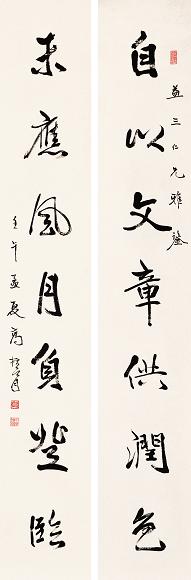 自以文章供潤色
益三仁兄雅鑒
未應風月負登臨
壬午孟夏高振霄